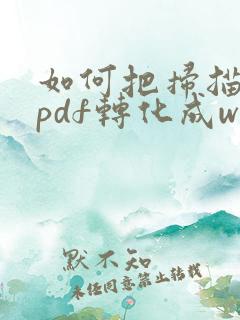 如何把掃描
pdf轉化成w
默不知
未經同意禁止轉載